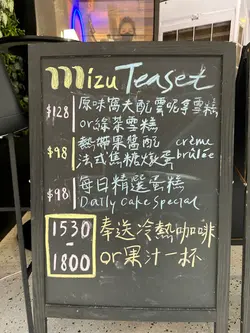 mizu Teaset
$128 原味窩夫配雲呢拿雪糕
or綠茶雪糕
$98 熱帶果醬配 crème
法式焦糖燉蛋 brûlée
$98 每日精選蛋糕
Daily Cake Special
1530 奉送冷熱咖啡
-
1800 or果汁一杯